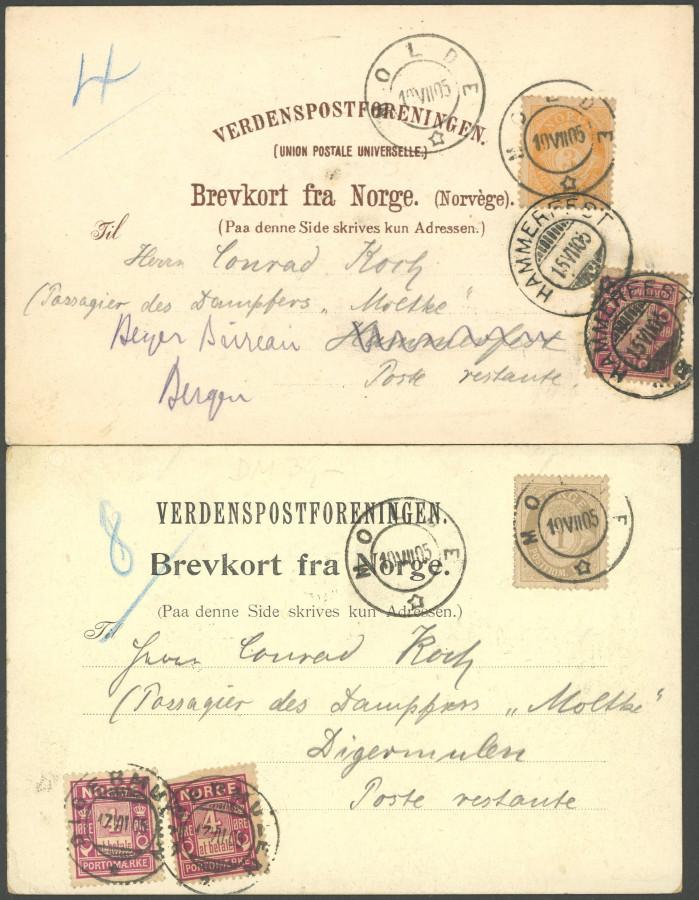 4
MOLDE
10 VII 05
VERDENSPOSTFORENINGEN.
(UNION POSTALE UNIVERSELLE.)
MOLDE
10 VII 05
NORGE
3
Brevkort fra Norge. (Norvège).
(Paa denne Side skrives kun Adressen.)
HAMMERFEST
15 VII 05
Til
Herrn Conrad Koch
(Passagier des Dampfers „Moltke“
Beyer Büreau Hammerfest
Poste restante
Bergen
HAMMERFEST
15 VII 05
DM 30,-
8
VERDENSPOSTFORENINGEN.
MOLDE
10 VII 05
NORGE
1
MOLDE
10 VII 05
Brevkort fra Norge.
(Paa denne Side skrives kun Adressen.)
Til
Herrn Conrad Koch
(Passagier des Dampfers „Moltke“
Digermulen
Poste restante
NORGE
at betale
PORTOMÆRKE
17 VII 05
NORGE
4
ØRE ØRE
at betale
PORTOMÆRKE